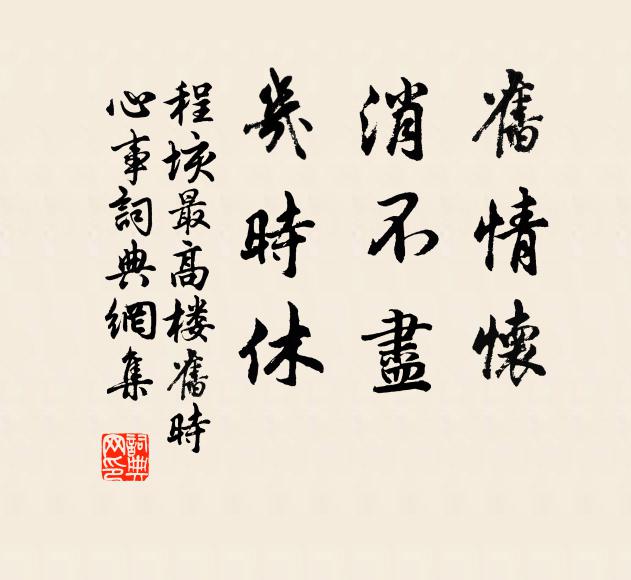 舊情懷
消不盡
幾時休
程垓最高楼舊時
心事詞典網集
詞典网印